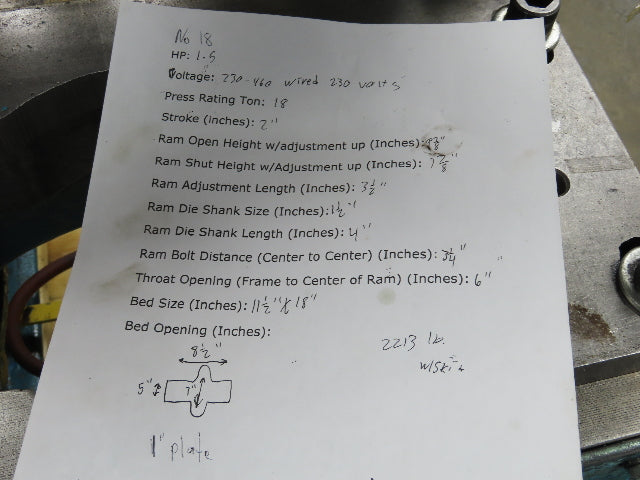 No 18
HP: 1.5
Voltage: 230-460 wired 230 volts
Press Rating Ton: 18
Stroke (Inches): 2"
Ram Open Height w/adjustment up (Inches):
Ram Shut Height w/Adjustment up (Inches): 7 7/8"
Ram Adjustment Length (Inches): 3 1/2"
Ram Die Shank Size (Inches): 1 1/2"
Ram Die Shank Length (Inches): 4"
Ram Bolt Distance (Center to Center) (Inches): 3 1/4"
Throat Opening (Frame to Center of Ram) (Inches): 6"
Bed Size (Inches): 11 1/2" X 18"
Bed Opening (Inches):
8 1/2"
5" 7"
2213 lb.
1" plate